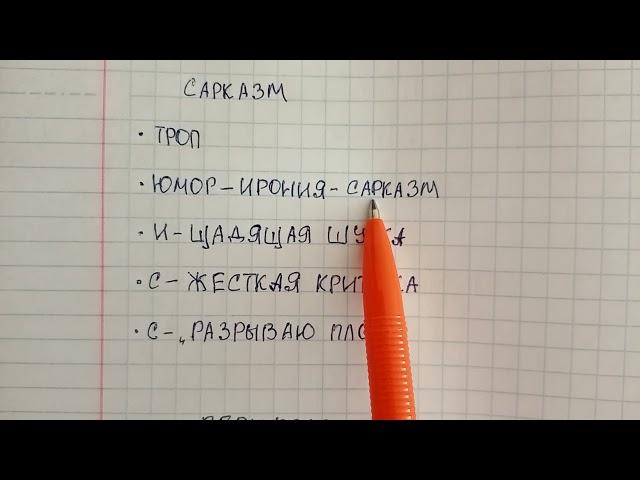 САРКАЗМ
· ТРОП
· ЮМОР – ИРОНИЯ – САРКАЗМ
· И – ЩАДЯЩАЯ
· С – ЖЕСТКАЯ
· С – „РАЗРЫВАЮ